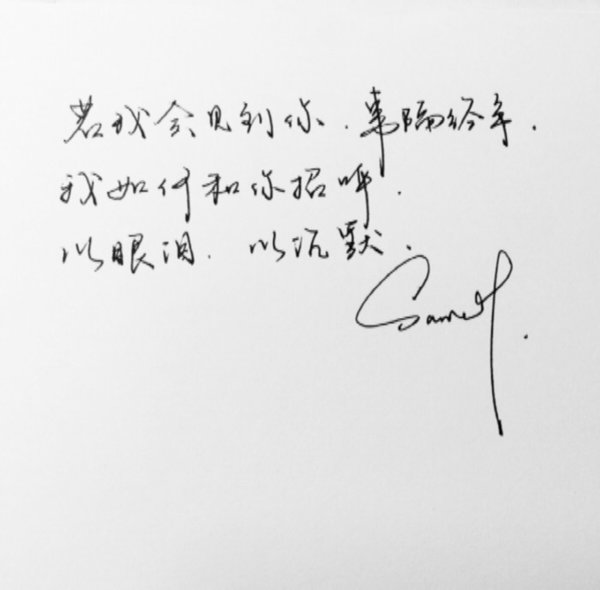 若我会见到你．事隔经年．
我如何和你招呼．
以眼泪．以沉默．